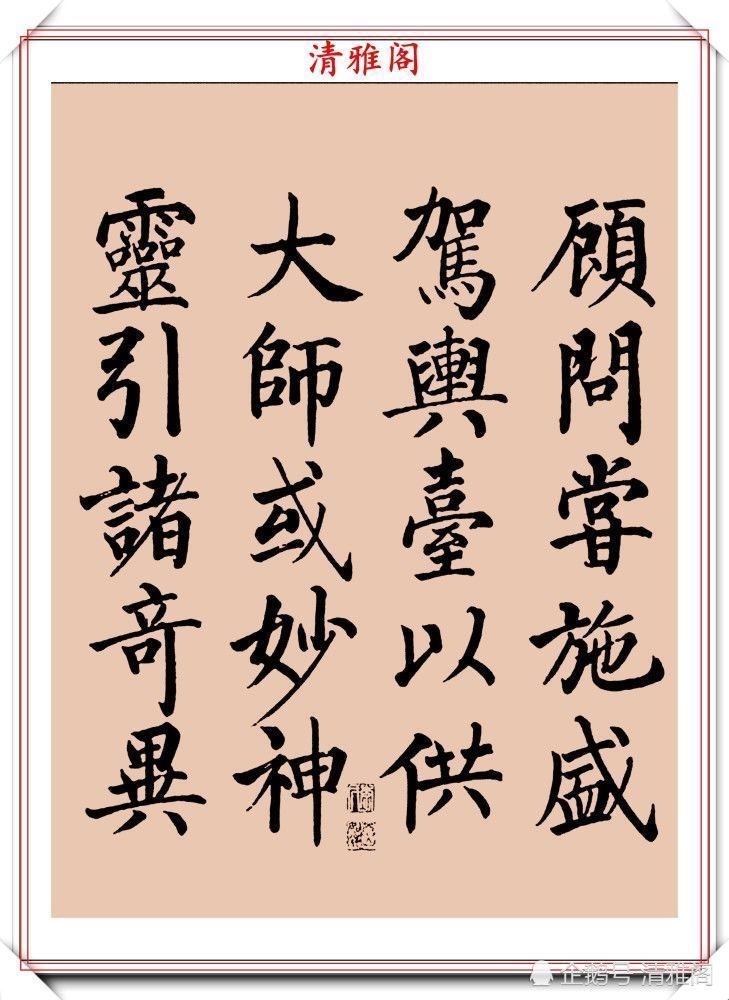 清雅阁
顧問甞施盛
駕輿臺以供
大師或妙神
靈引諸奇異
企鹅号 清雅阁